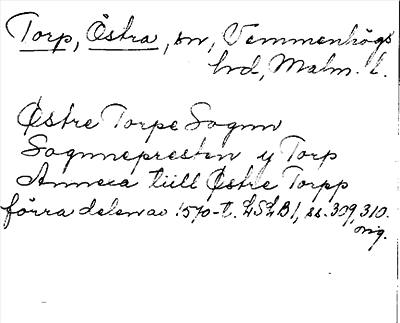 Torp, Östra, sn, Vemmenhögs
hd, Malm. l.
Østre Torpe Sognn
Sognnepresten y Torp
Annexa tiill Østre Torpp
förra delen av 1570-t. LSLB1, ss. 309, 310.
orig.